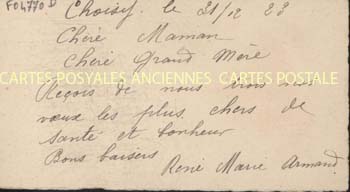 F04770 D
Choisy. le 21/12 23
Chère Maman
Chère Grand Mère
CARTES POSYALES ANCIENNES CARTES POSTALE
Reçois de nous trois nos
vœux les plus chers de
santé et bonheur
Bons baisers
René Marie Armand